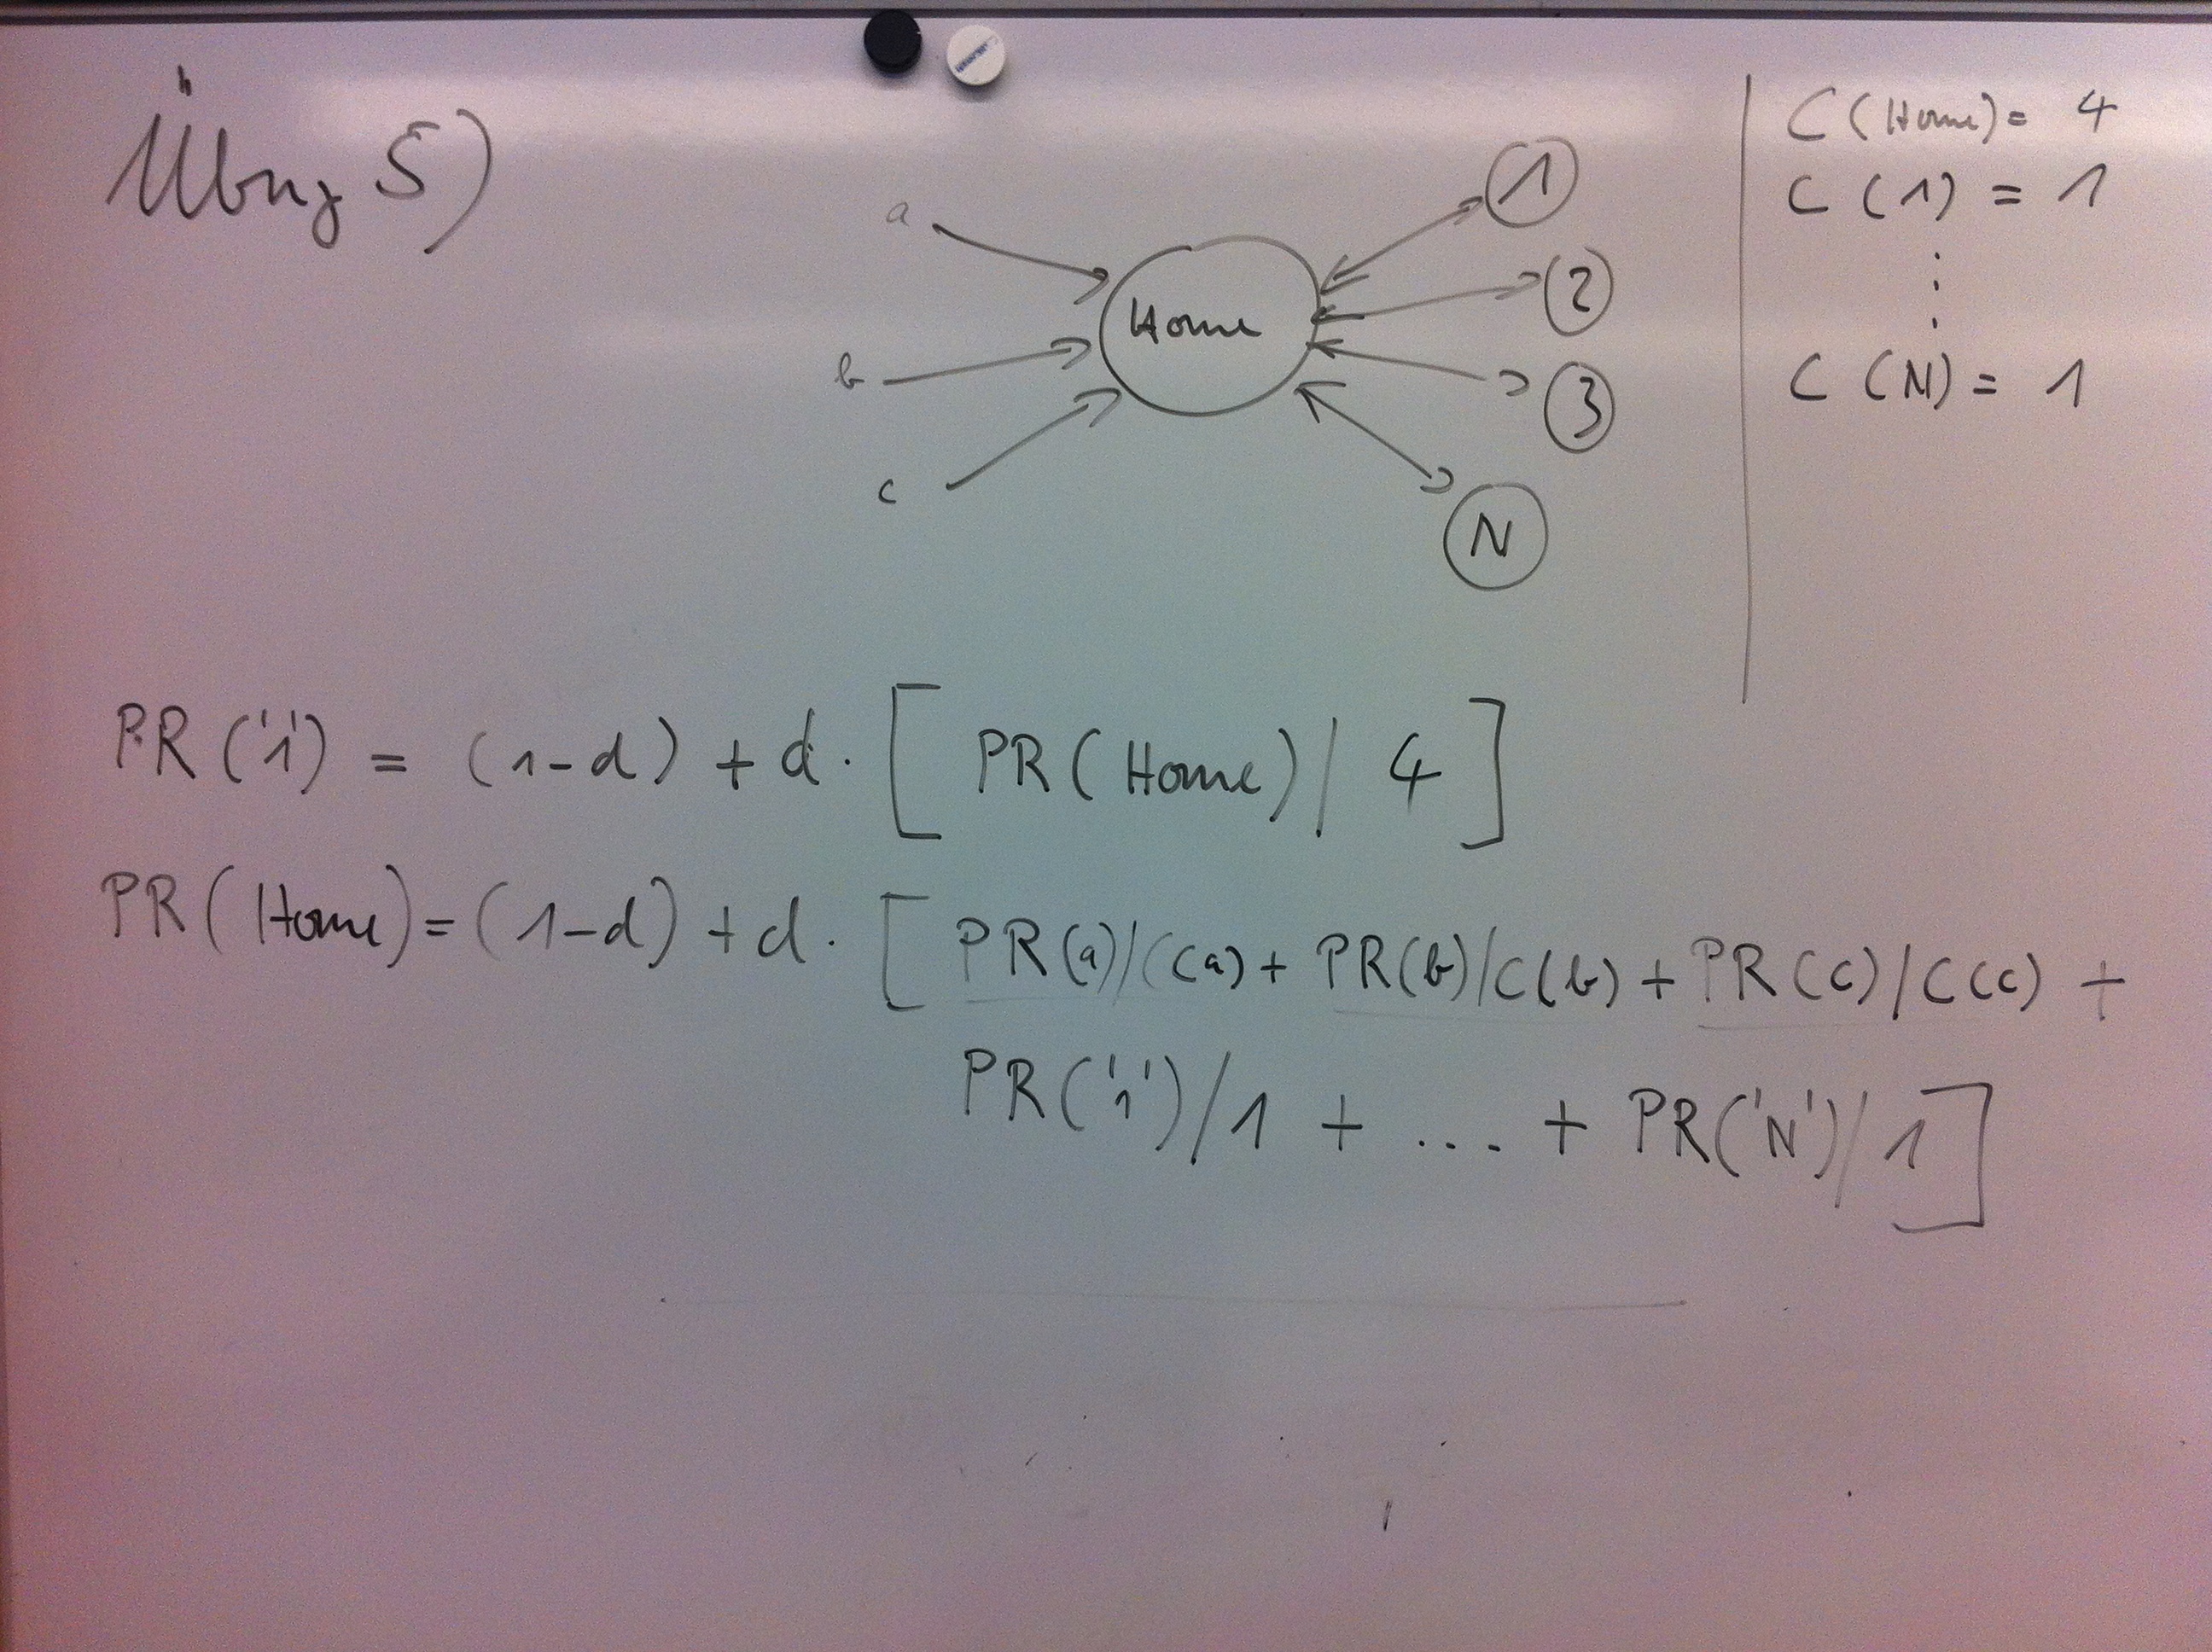 Übung 5)
a
b
c
Home
1
2
3
N
C (Home) = 4
C (1) = 1
⋮
C (N) = 1
PR ('1') = (1-d) + d · [ PR (Home) / 4 ]
PR (Home) = (1-d) + d · [ PR(a)/C(a) + PR(b)/C(b) + PR(c)/C(c) +
PR('1')/1 + .... + PR('N')/1 ]